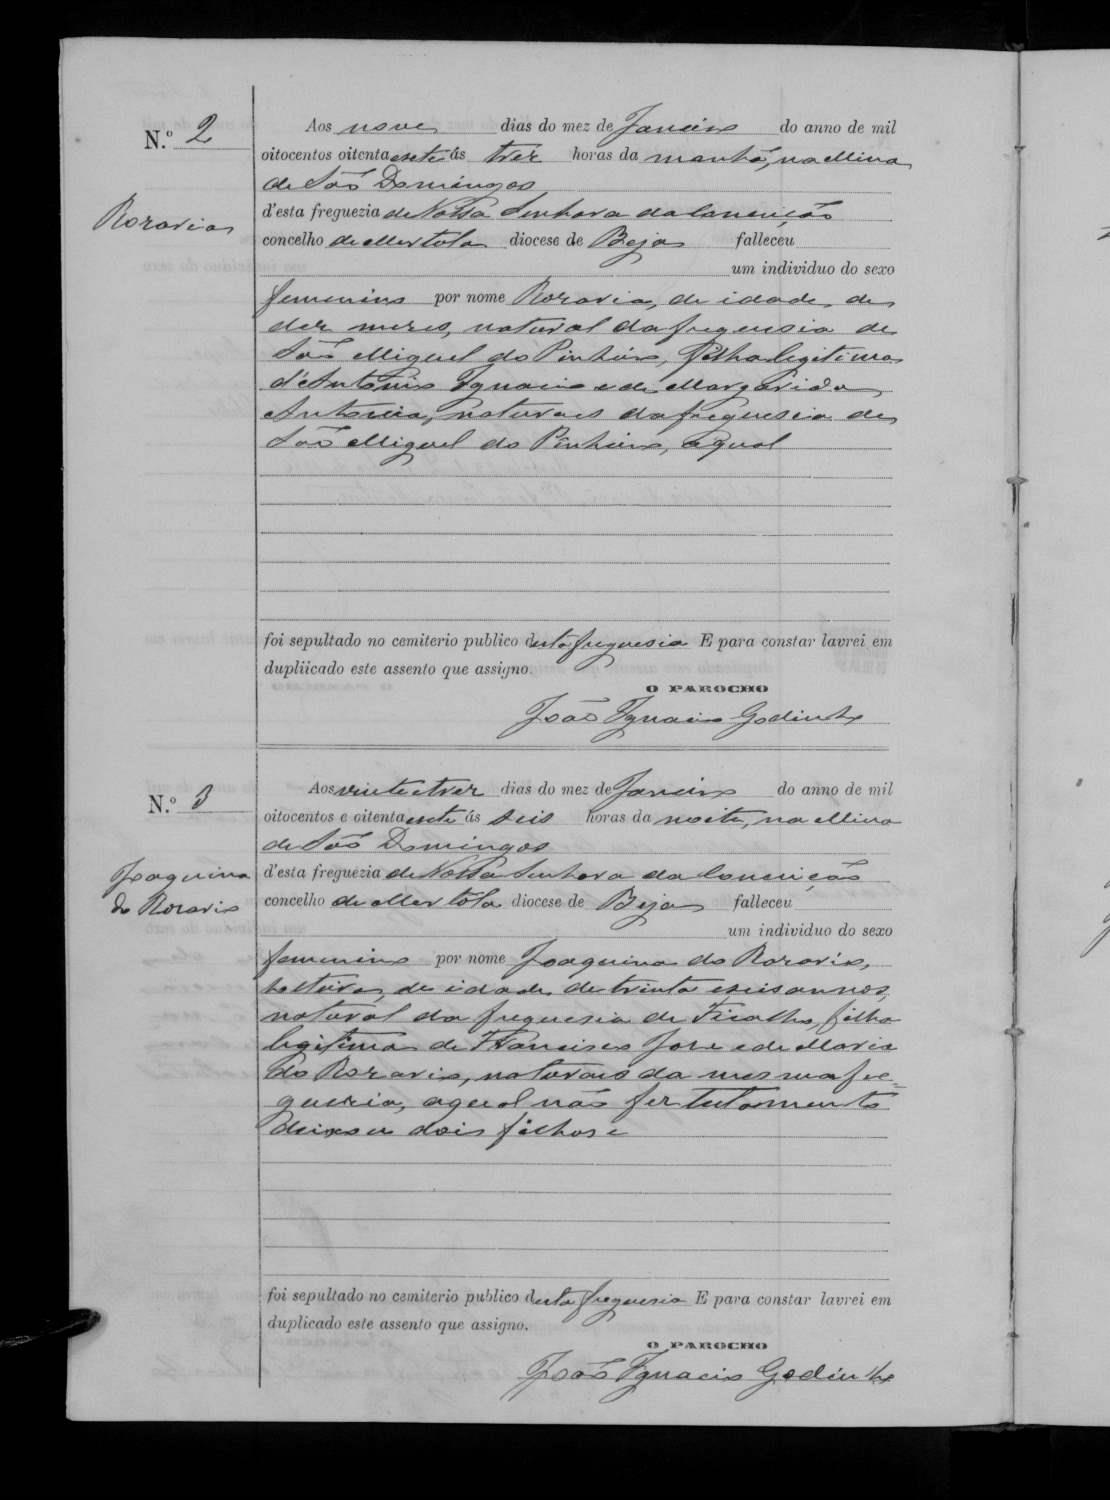 N.º 2
Aos nove dias do mez de Janeiro do anno de mil
oitocentos oitenta e sete ás trez horas da manhã, na Mina
de São Domingos
Rozaria
d'esta freguezia de Nossa Senhora da Conceição
concelho de Mertola diocese de Beja falleceu
um individuo do sexo
femenino por nome Rozaria, de idade de
dez mezes, natural da freguesia de
São Miguel do Pinheiro, filha legitima
d'Antonio Ignacio e de Margarida
Antonia, naturaes da freguesia de
São Miguel do Pinheiro, a qual
foi sepultado no cemiterio publico desta freguesia E para constar lavrei em
dupliicado este assento que assigno.
O PAROCHO
João Ignacio Godinho
N.º 3
Aos vinte e trez dias do mez de Janeiro do anno de mil
oitocentos e oitenta e sete ás seis horas da noite, na Mina
de São Domingos
Joaquina
do Rozario
d'esta freguezia de Nossa Senhora da Conceição
concelho de Mertola diocese de Beja falleceu
um individuo do sexo
femenino por nome Joaquina do Rozario,
solteira, de idade de trinta e seis annos,
natural da freguesia de Ficalho, filha
legitima de Francisco Jose e de Maria
do Rozario, naturaes da mesma fre=
guesia, a qual não fez testamento
deixou dois filhos e
foi sepultado no cemiterio publico desta freguesia E para constar lavrei em
duplicado este assento que assigno.
O PAROCHO
João Ignacio Godinho